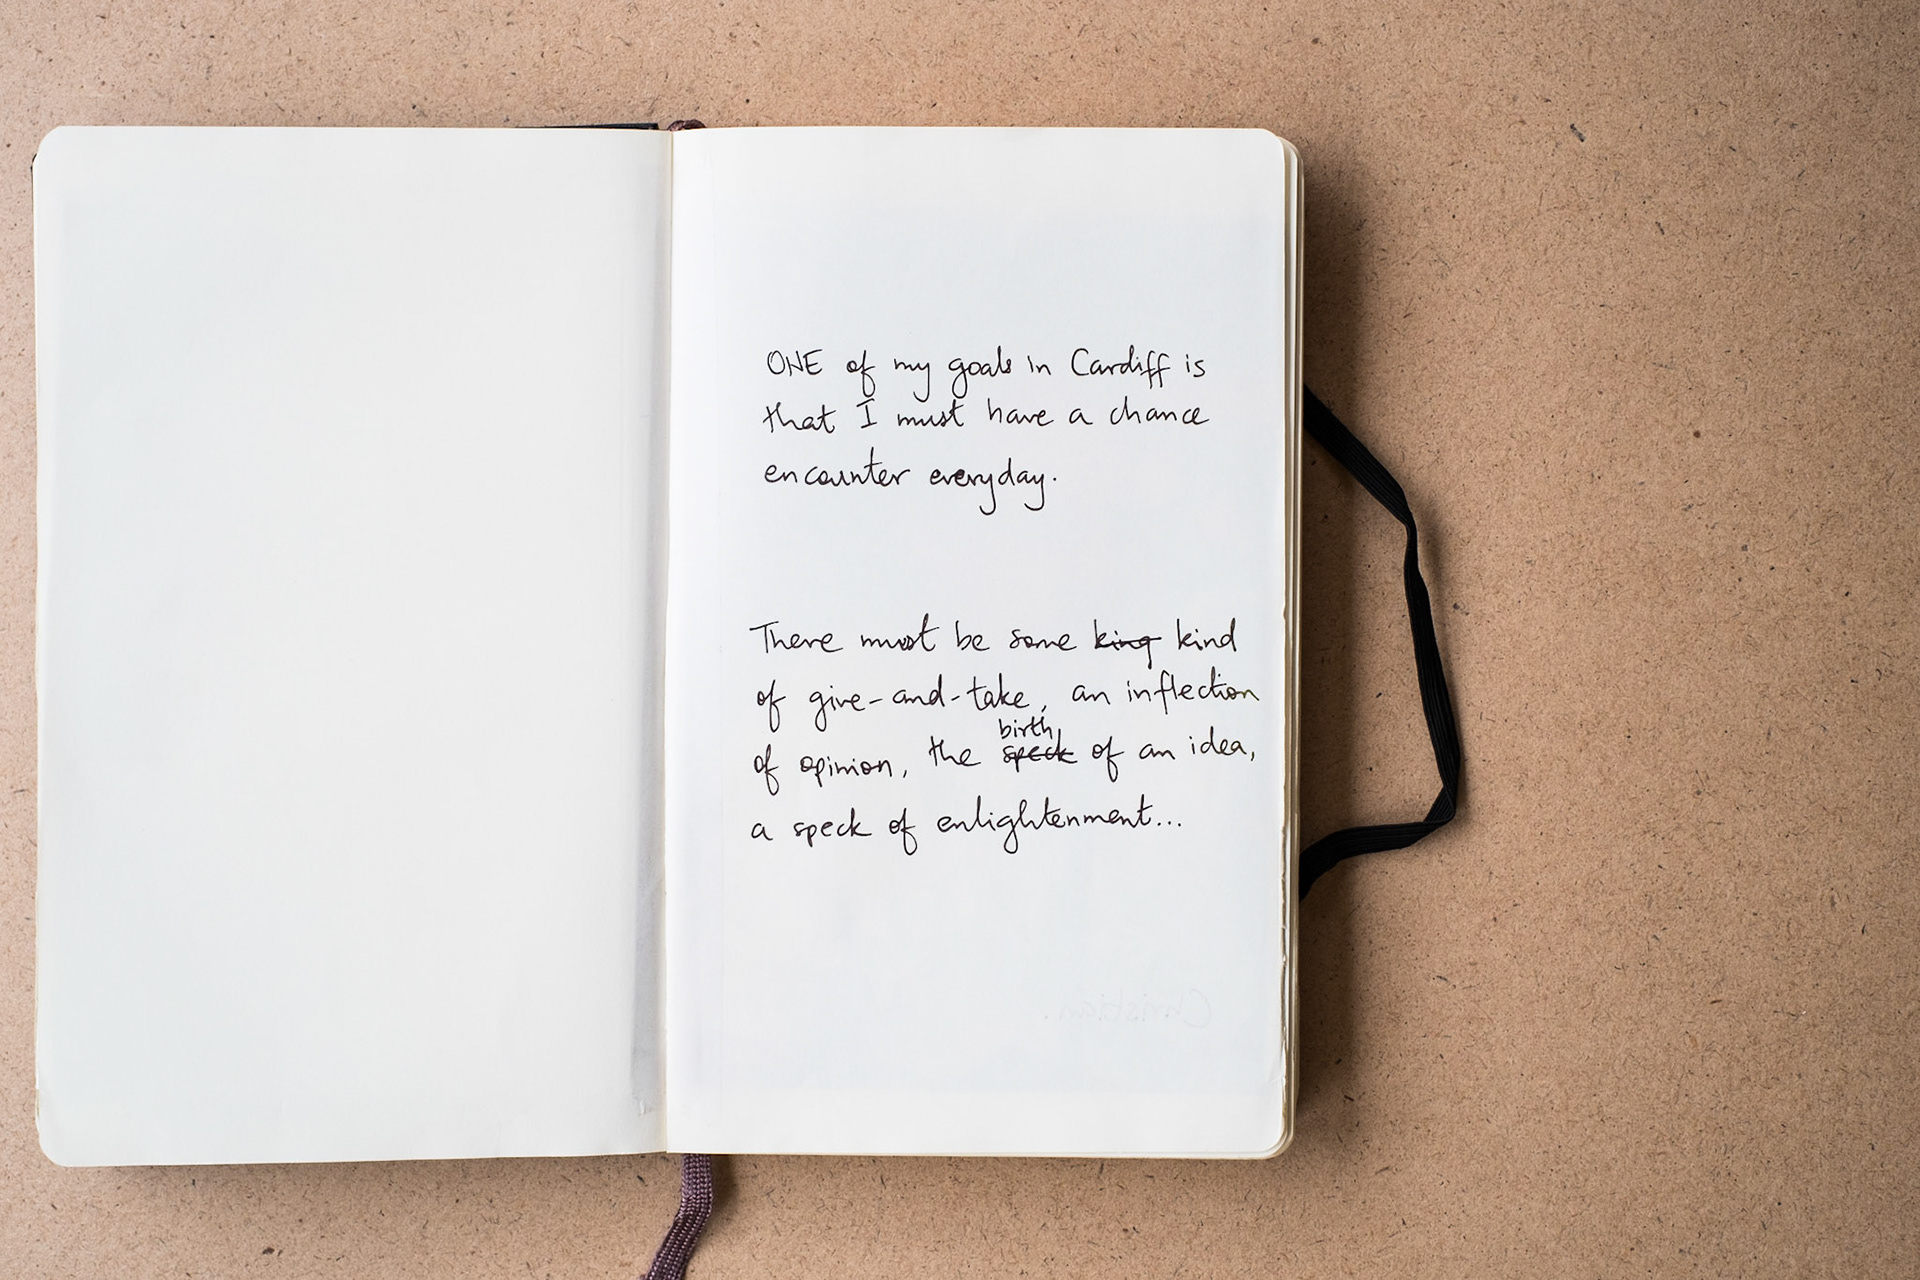 ONE of my goals in Cardiff is
that I must have a chance
encounter everyday.
There must be some king kind
of give-and-take, an inflection
birth
of opinion, the speck of an idea,
a speck of enlightenment...
Christian.